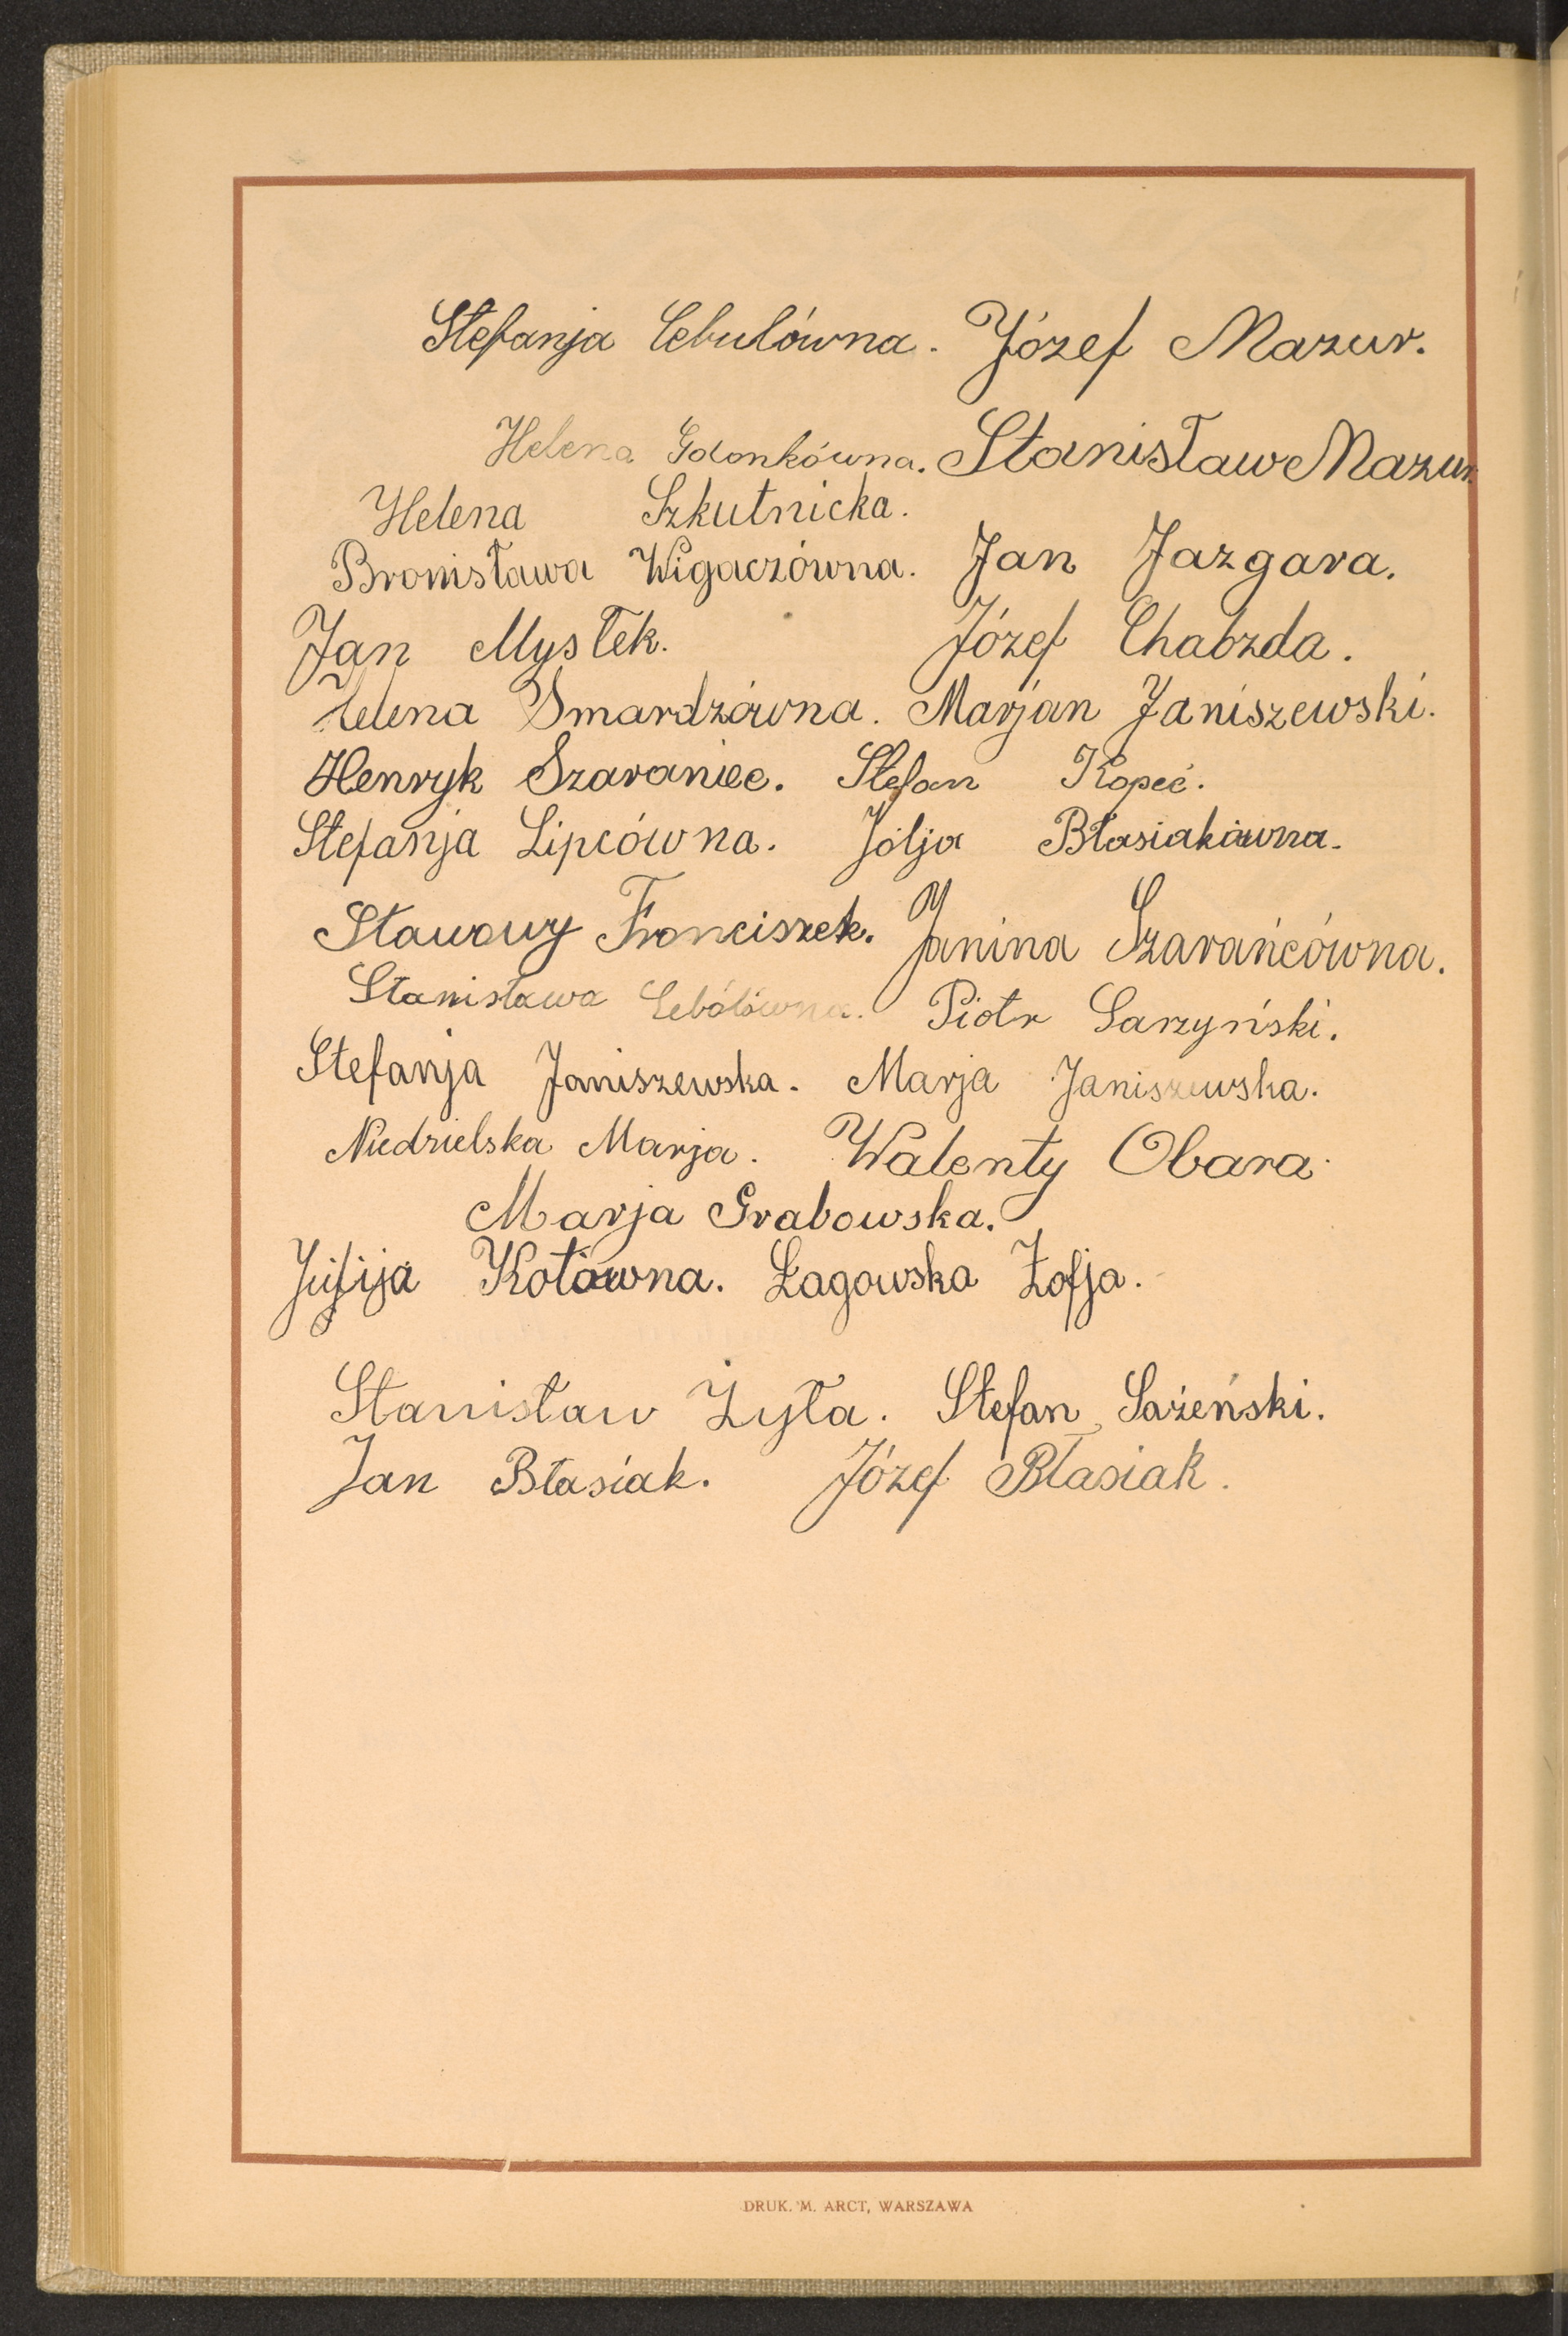 Stefanja Cebulówna. Józef Mazur.
Helena Gdonkówna. Stanisław Mazur.
Helena Szkutnicka.
Bronisława Wigaczówna. Jan Jazgara.
Jan Mystek. Józef Chabzda.
Helena Smardzówna. Marjan Janiszewski.
Henryk Szaraniec. Stefan Kopeć.
Stefanja Lipcówna. Jólja Błasiakówna.
Stawowy Franciszek. Janina Szarańcówna.
Stanisława Cebólówna. Piotr Sarzyński.
Stefanja Janiszewska. Marja Janiszewska.
Niedzielska Marja. Walenty Obara.
Marja Grabowska.
Kotówna. Łagowska Zofja.
Stanisław Żyła. Stefan Sażeński.
Jan Błasiak. Józef Błasiak.
DRUK. M. ARCT, WARSZAWA